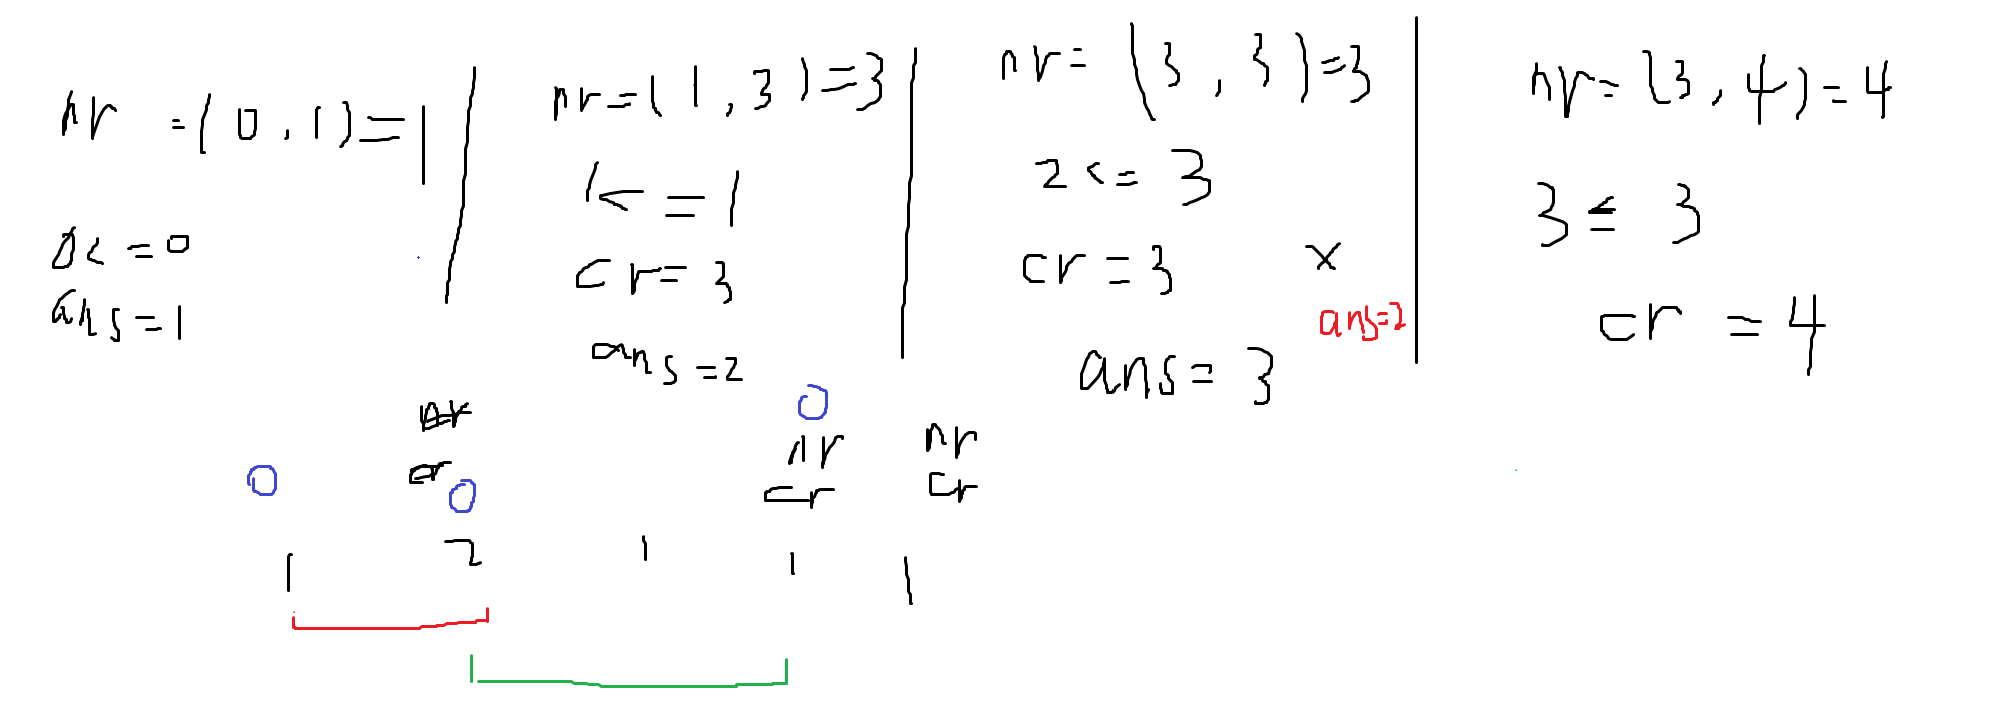 nr = (0, 1) = 1
0 < = 0
ans = 1
nr = (1, 3) = 3
1 < = 1
cr = 3
ans = 2
nr = (3, 3) = 3
2 < = 3
cr = 3 x
ans=2
ans = 3
nr = (3, 4) = 4
3 ≤ 3
cr = 4
nr 0
cr nr nr
0 0 cr cr
1 2 1 1 1